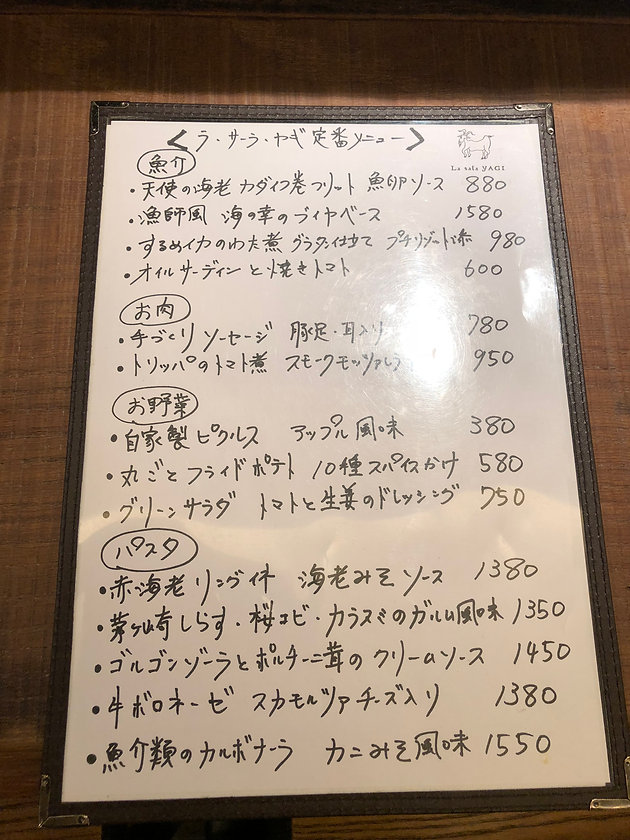 <ラ・サーラ・ヤギ定番メニュー>
La sala YAGI
魚介
・天使の海老 カダイフ巻フリット 魚卵ソース 880
・漁師風 海の幸のブイヤベース 1580
・するめイカのわた煮 グラタン仕立て プチリゾット添 980
・オイルサーディンと焼きトマト 600
お肉
・手づくりソーセージ 豚足・耳入り 780
・トリッパのトマト煮 スモークモッツァレラ 950
お野菜
・自家製ピクルス アップル風味 380
・丸ごとフライドポテト 10種スパイスかけ 580
・グリーンサラダ トマトと生姜のドレッシング 750
パスタ
・赤海老 リングイネ 海老みそソース 1380
・茅ヶ崎しらす・桜エビ・カラスミのガルム風味 1350
・ゴルゴンゾーラとポルチーニ茸のクリームソース 1450
・牛ボロネーゼ スカモルツァチーズ入り 1380
・魚介類のカルボナーラ カニみそ風味 1550